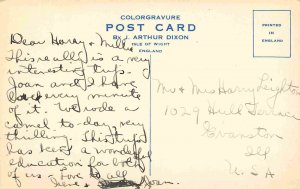 COLORGRAVURE
POST CARD
BY J. ARTHUR DIXON
ISLE OF WIGHT
ENGLAND
PRINTED
IN
ENGLAND
Dear Harry & Millie
This really is a very
interesting trip.
Joan and I have
every minute
of it. We rode a
camel to-day very
thrilling. This trip
has been a wonderful
education for both
of us. Love to all
Joan.
Mr & Mrs Harry Lighton
1029 Hull Terrace
Evanston
Ill
U.S.A